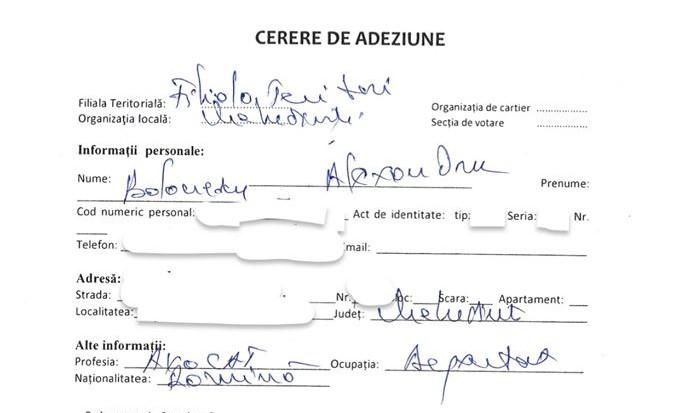 CERERE DE ADEZIUNE
Filiala Teritorială: Filiala Teritori
Organizația de cartier ..............
Organizația locală: Mehedinți
Secția de votare ..............
Informații personale:
Nume: Alexandru Prenume:
Cod numeric personal: Act de identitate: tip: Seria: Nr.
Telefon: mail:
Adresă:
Strada: Nr. oc: Scara: Apartament:
Localitatea: Județ:
Alte informații:
Profesia: AVOCAT Ocupația:
Naționalitatea: Română